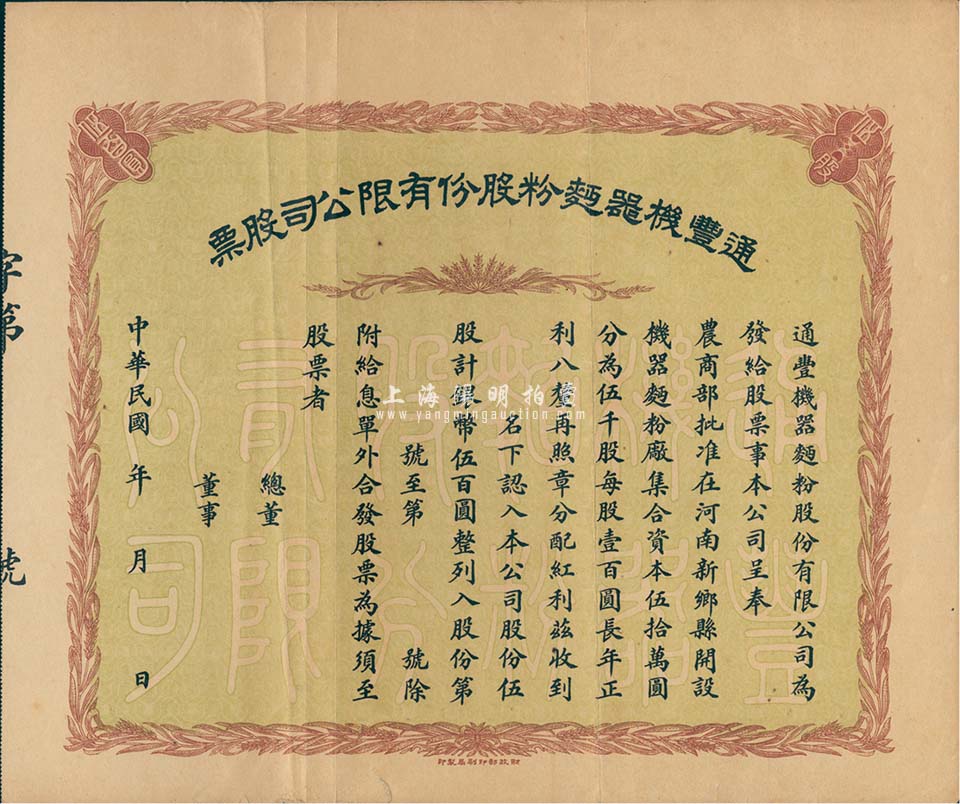 通豐機器麵粉股份有限公司股票
通豐機器麵粉股份有限公司為
發給股票事本公司呈奉
農商部批准在河南新鄉縣開設
機器麵粉廠集合資本伍拾萬圓
分為伍千股每股壹百圓長年正
利八釐再照章分配紅利茲收到
名下認入本公司股份伍
股計銀幣伍百圓整列入股份第
號至第 號除
附給息單外合發股票為據須至
股票者
總董
董事
中華民國 年 月 日
字第 號
上海陽明拍賣
www.yangmingauction.com
財政部印刷局製印